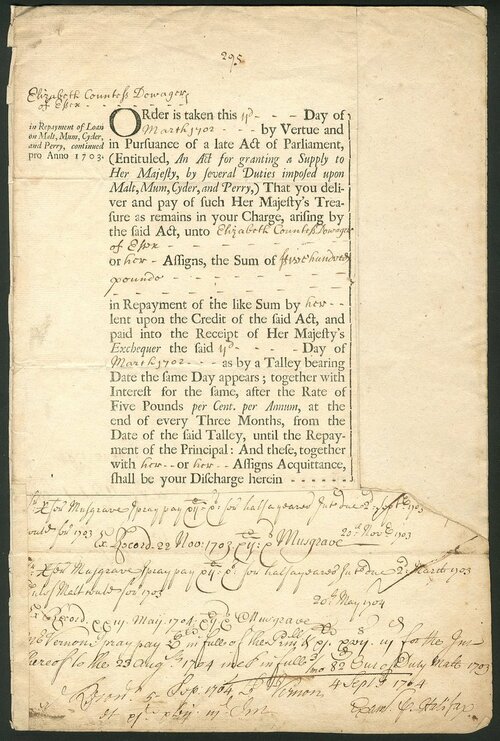 295
Elizabeth Countess Dowager
of Essex
in Repayment of Loan
on Malt, Mum, Cyder,
and Perry, continued
pro Anno 1703.
ORder is taken this - - - - Day of
March 1702 - - - - by Vertue and
in Pursuance of a late Act of Parliament,
(Entituled, An Act for granting a Supply to
Her Majesty, by several Duties imposed upon
Malt, Mum, Cyder, and Perry,) That you deli-
ver and pay of such Her Majesty's Trea-
sure as remains in your Charge, arising by
the said Act, unto Elizabeth Countess Dowager
of Essex
or her - Assigns, the Sum of five hundred
pounds
in Repayment of the like Sum by her - -
lent upon the Credit of the said Act, and
paid into the Receipt of Her Majesty's
Exchequer the said - - - - Day of
March 1702 - - - as by a Talley bearing
Date the same Day appears; together with
Interest for the same, after the Rate of
Five Pounds per Cent. per Annum, at the
end of every Three Months, from the
Date of the said Talley, until the Repay-
ment of the Principal: And these, together
with her - - or her - - Assigns Acquittance,
shall be your Discharge herein - - - - - -
Musgrave pray pay for half a yeares Int due Sept 1703
1703 Record. 22 Nov: 1703 Musgrave 20th Nov 1703
Musgrave pray pay for half a yeares Int due March 1703
Malt 1703
20th May 1704
Record. May. 1704. Musgrave
Vernon pray pay in full of the for the Int
to the 23 Aug 1704 in full No 82 Duty Malt 1703
5 Sep. 1704, Vernon 4 Sept 1704
Halifax